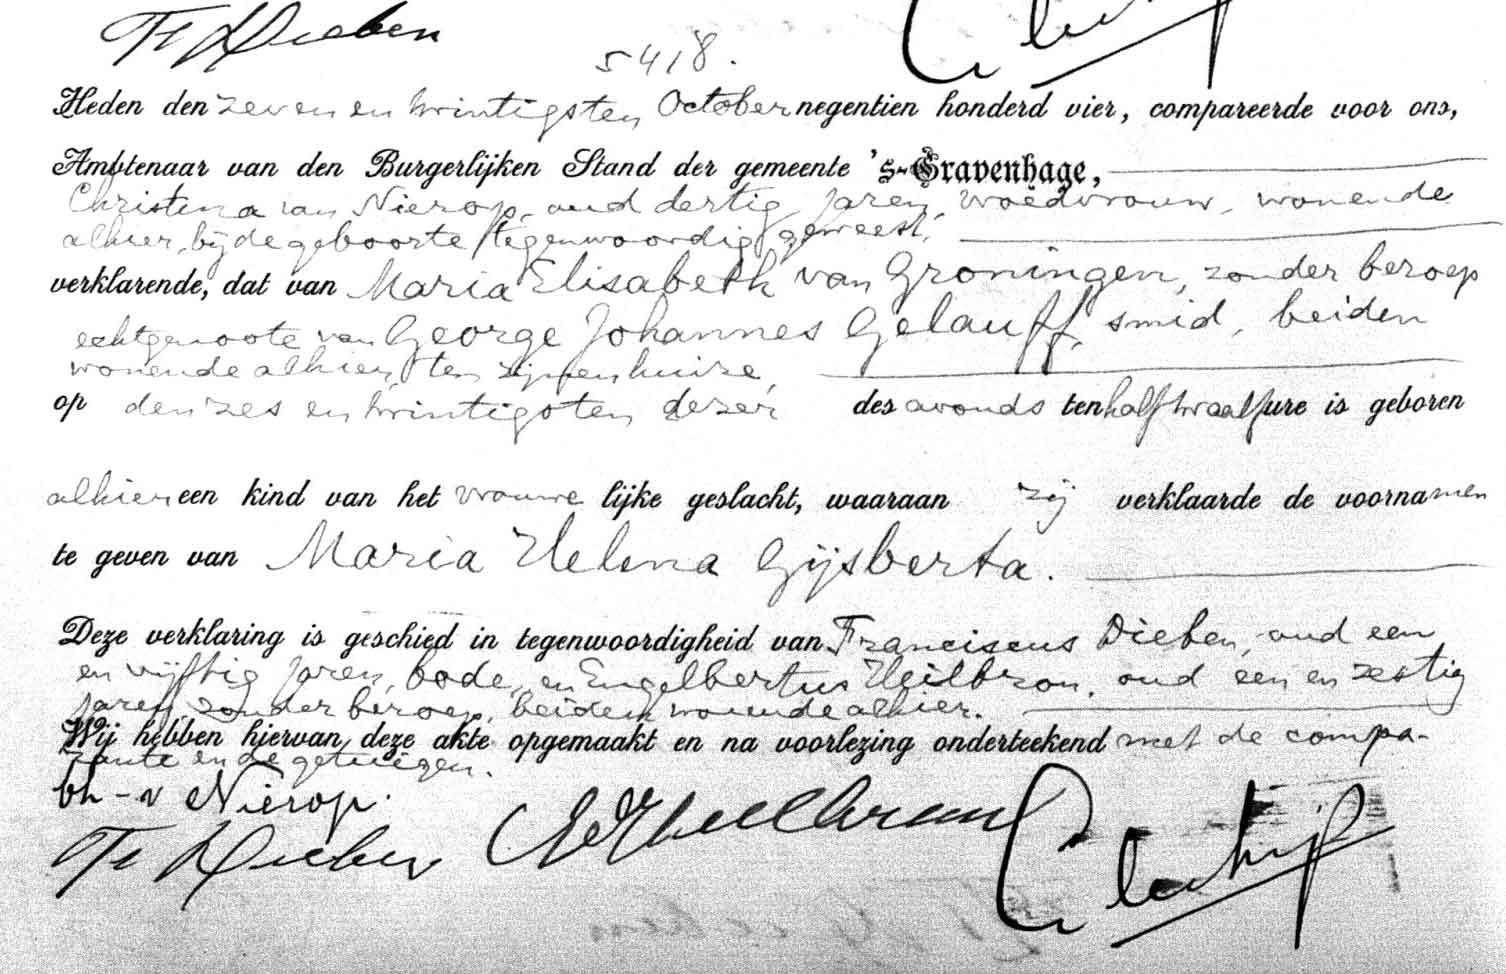 Fr Dieben
5418.
Heden den zeven en twintigsten October negentien honderd vier, compareerde voor ons,
Ambtenaar van den Burgerlijken Stand der gemeente 's-Gravenhage,
Christina van Nierop, oud dertig jaren, vroedvrouw, wonende
alhier, bij de geboorte tegenwoordig geweest,
verklarende, dat van Maria Elisabeth van Groningen, zonder beroep
echtgenoote van George Johannes Gelauff, smid, beiden
wonende alhier, ten zijnen huize,
op den zes en twintigsten dezer des avonds ten half twaalf ure is geboren
alhier een kind van het vrouwe lijke geslacht, waaraan zij verklaarde de voornamen
te geven van Maria Helena Gijsberta.
Deze verklaring is geschied in tegenwoordigheid van Franciscus Dieben, oud een
en vijftig jaren, bode, en Engelbertus Heilbron, oud een en zestig
jaren, zonder beroep, beiden wonende alhier.
Wij hebben hiervan deze akte opgemaakt en na voorlezing onderteekend met de compa-
rante en de getuigen.
Ch-v Nierop.
Fr Dieben